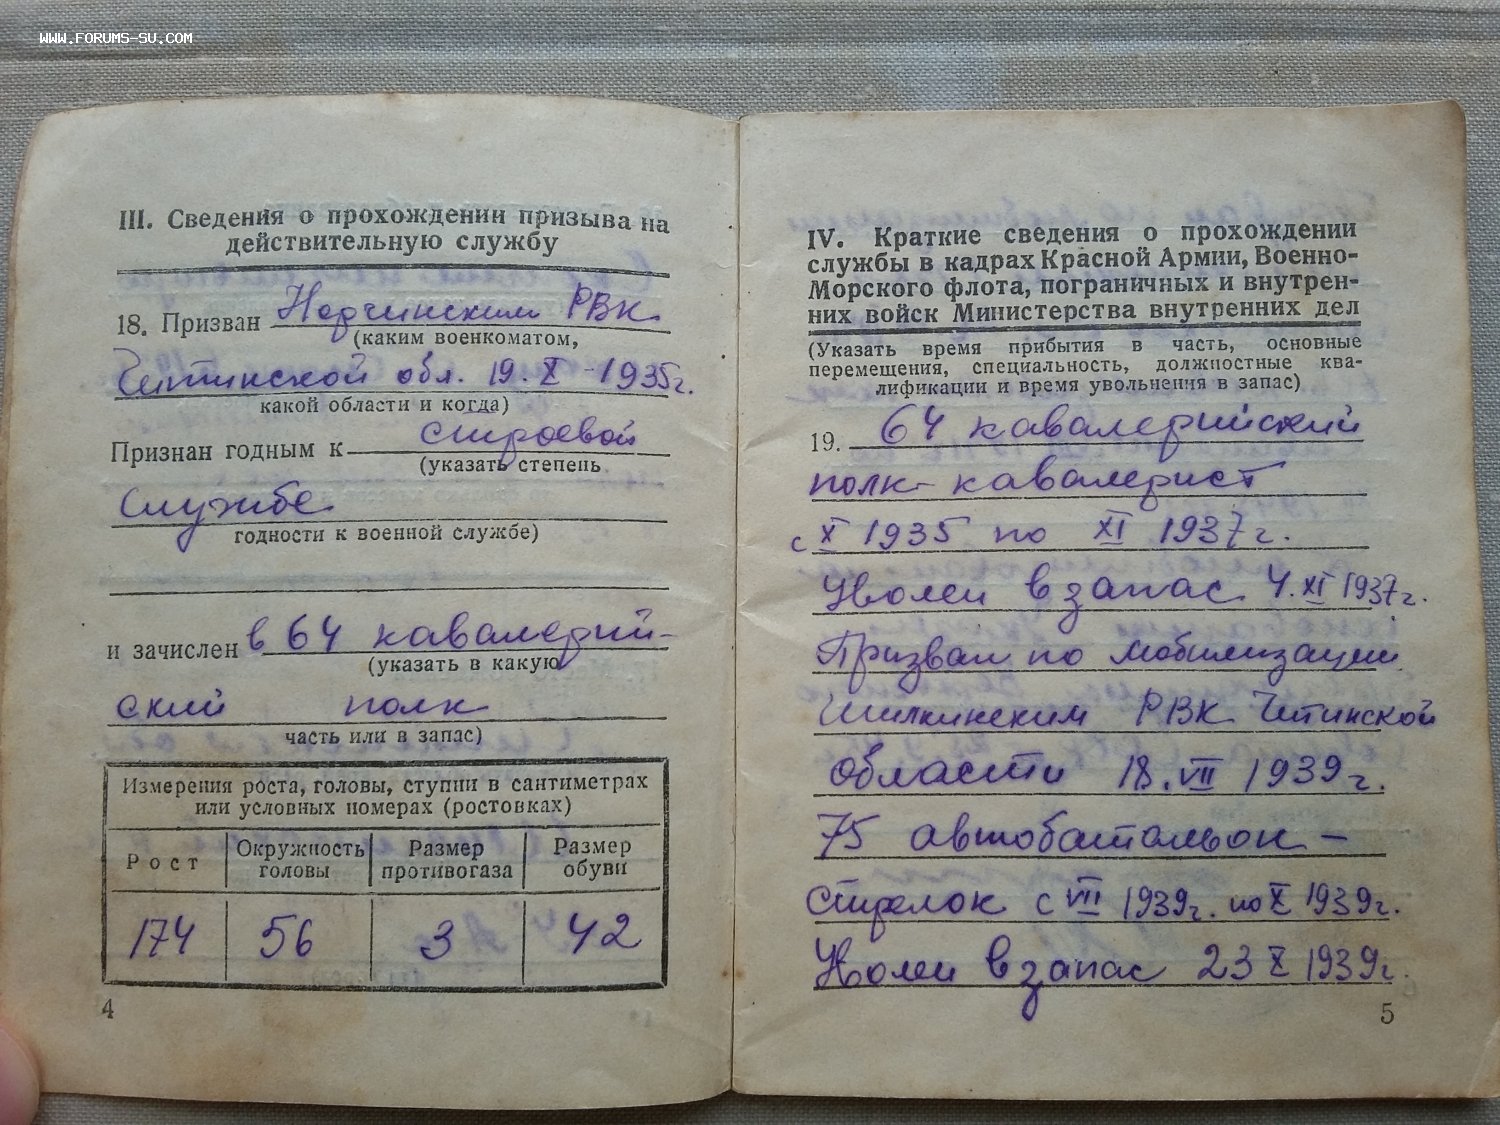 WWW.FORUMS-SU.COM
III. Сведения о прохождении призыва на
действительную службу
18. Призван Нерчинским РВК
(каким военкоматом,
Читинской обл. 19. X - 1935г.
какой области и когда)
Признан годным к строевой
(указать степень
службе
годности к военной службе)
и зачислен в 64 кавалерий-
(указать в какую
ский полк
часть или в запас)
Измерения роста, головы, ступни в сантиметрах
или условных номерах (ростовках)
Рост Окружность головы Размер противогаза Размер обуви
174 56 3 42
4
IV. Краткие сведения о прохождении
службы в кадрах Красной Армии, Военно-
Морского флота, пограничных и внутрен-
них войск Министерства внутренних дел
(Указать время прибытия в часть, основные
перемещения, специальность, должностные ква-
лификации и время увольнения в запас)
19. 64 кавалерийский
полк - кавалерист
с X 1935 по XI 1937г.
Уволен в запас 4. XI 1937г.
Призван по мобилизации
Шилкинским РВК Читинской
области 18. VII 1939г.
75 автобатальон -
стрелок с VII 1939г. по X 1939г.
Уволен в запас 23 X 1939г.
5